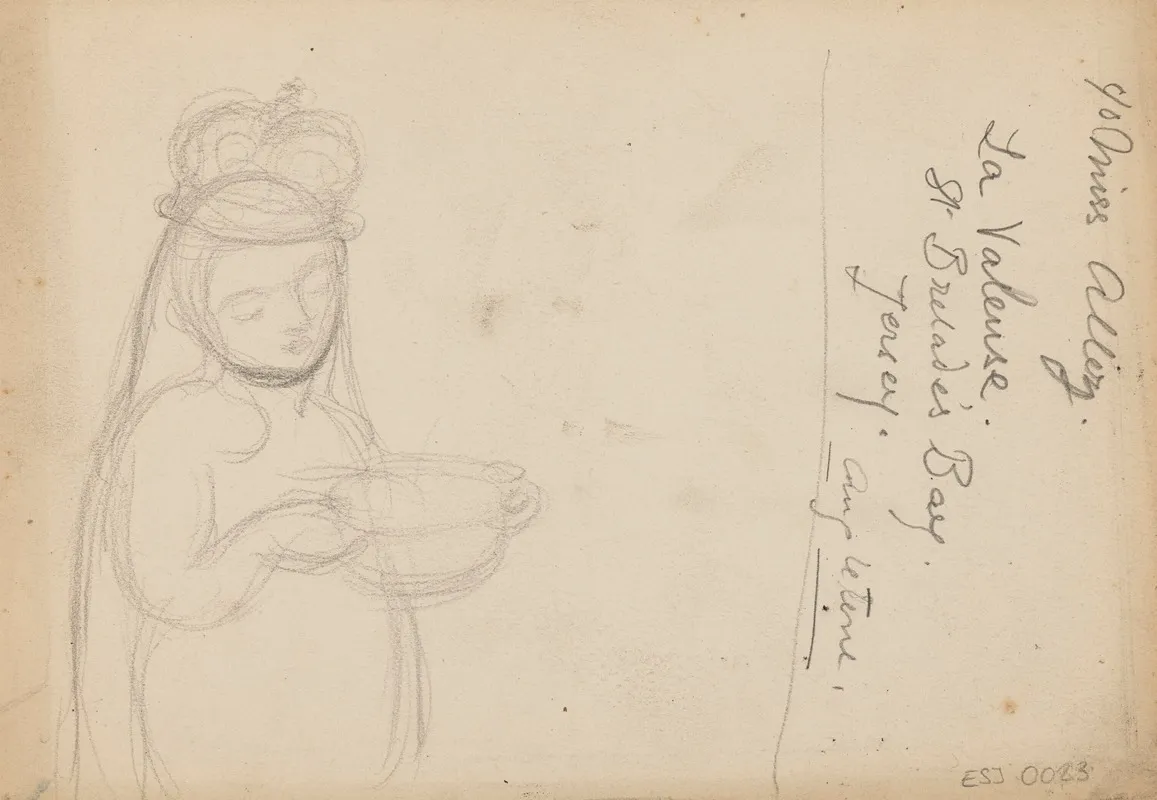 c/o Miss Allez.
La Valeuse.
St. Brelade's Bay.
Jersey.
Angleterre.
ESJ 0083